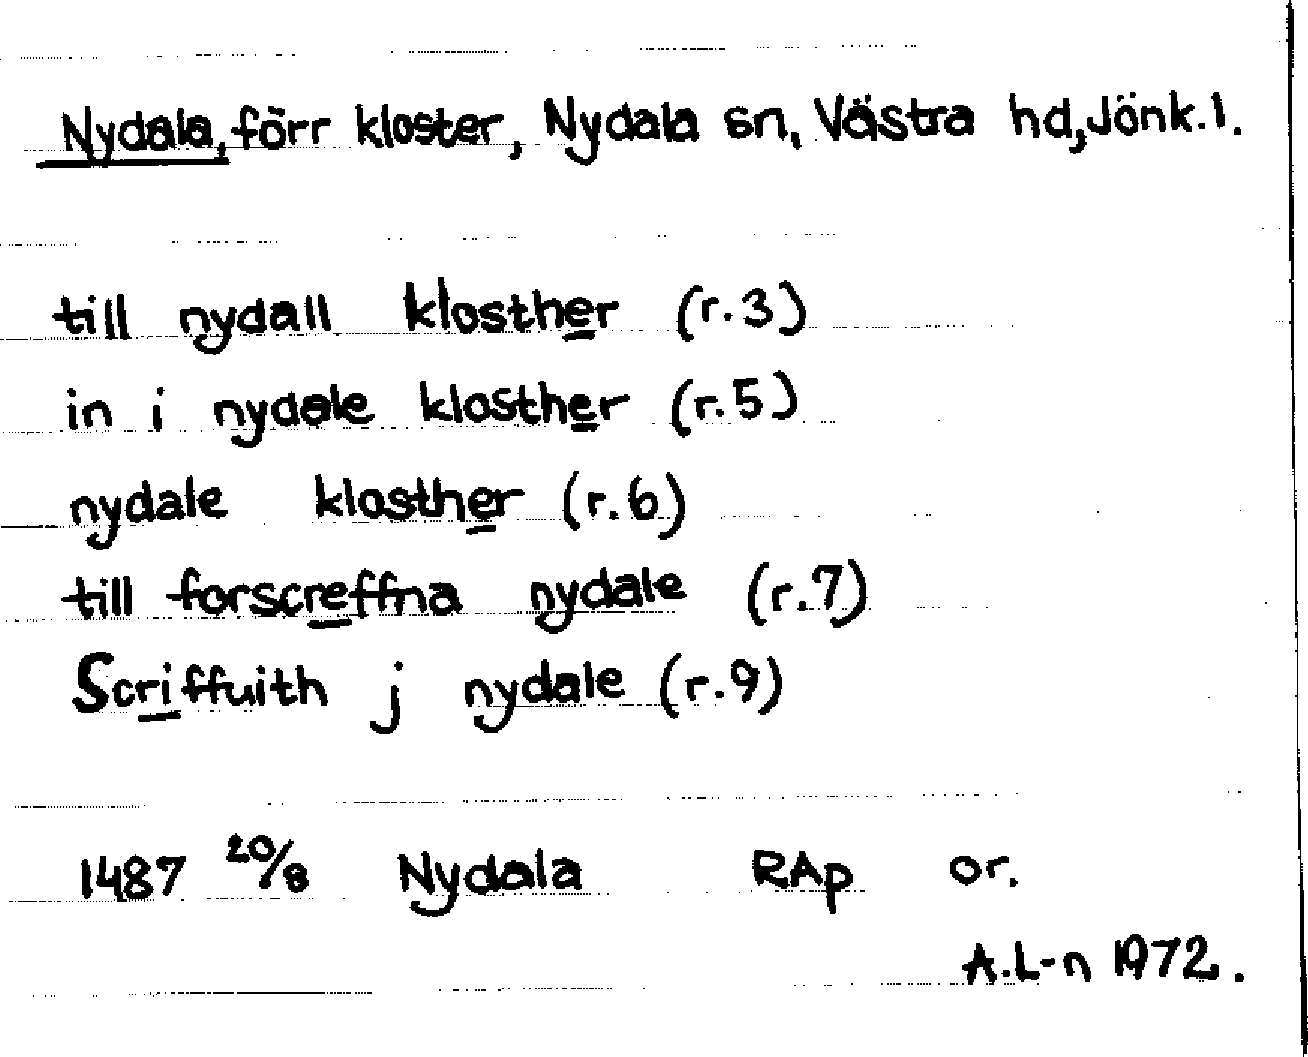 Nydala, förr kloster, Nydala sn, Västra hd, Jönk.l.
till nydall klosther (r.3)
in i nydale klosther (r.5)
nydale klosther (r.6)
till forscreffna nydale (r.7)
Scriffuith j nydale (r.9)
1487 20/8 Nydala RAp or.
A.L-n 1972.